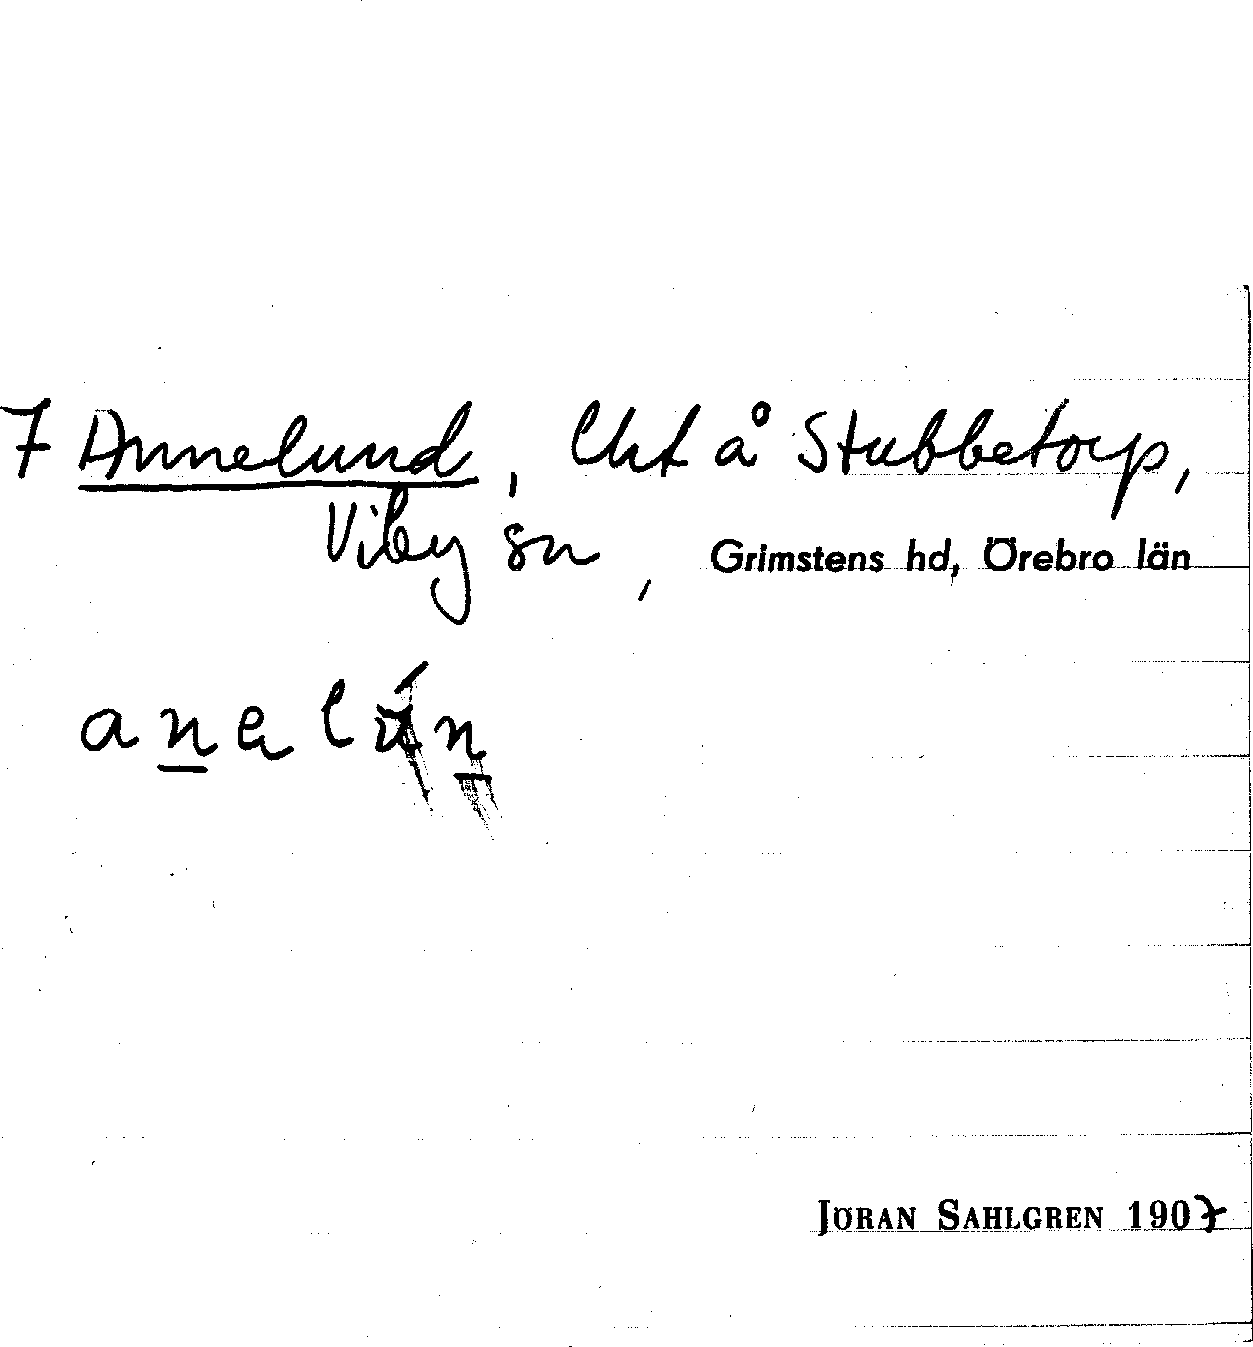 7 Annelund, lht å Stubbetorp,
Viby sn, Grimstens hd, Örebro län
anəlún
JÖRAN SAHLGREN 1907